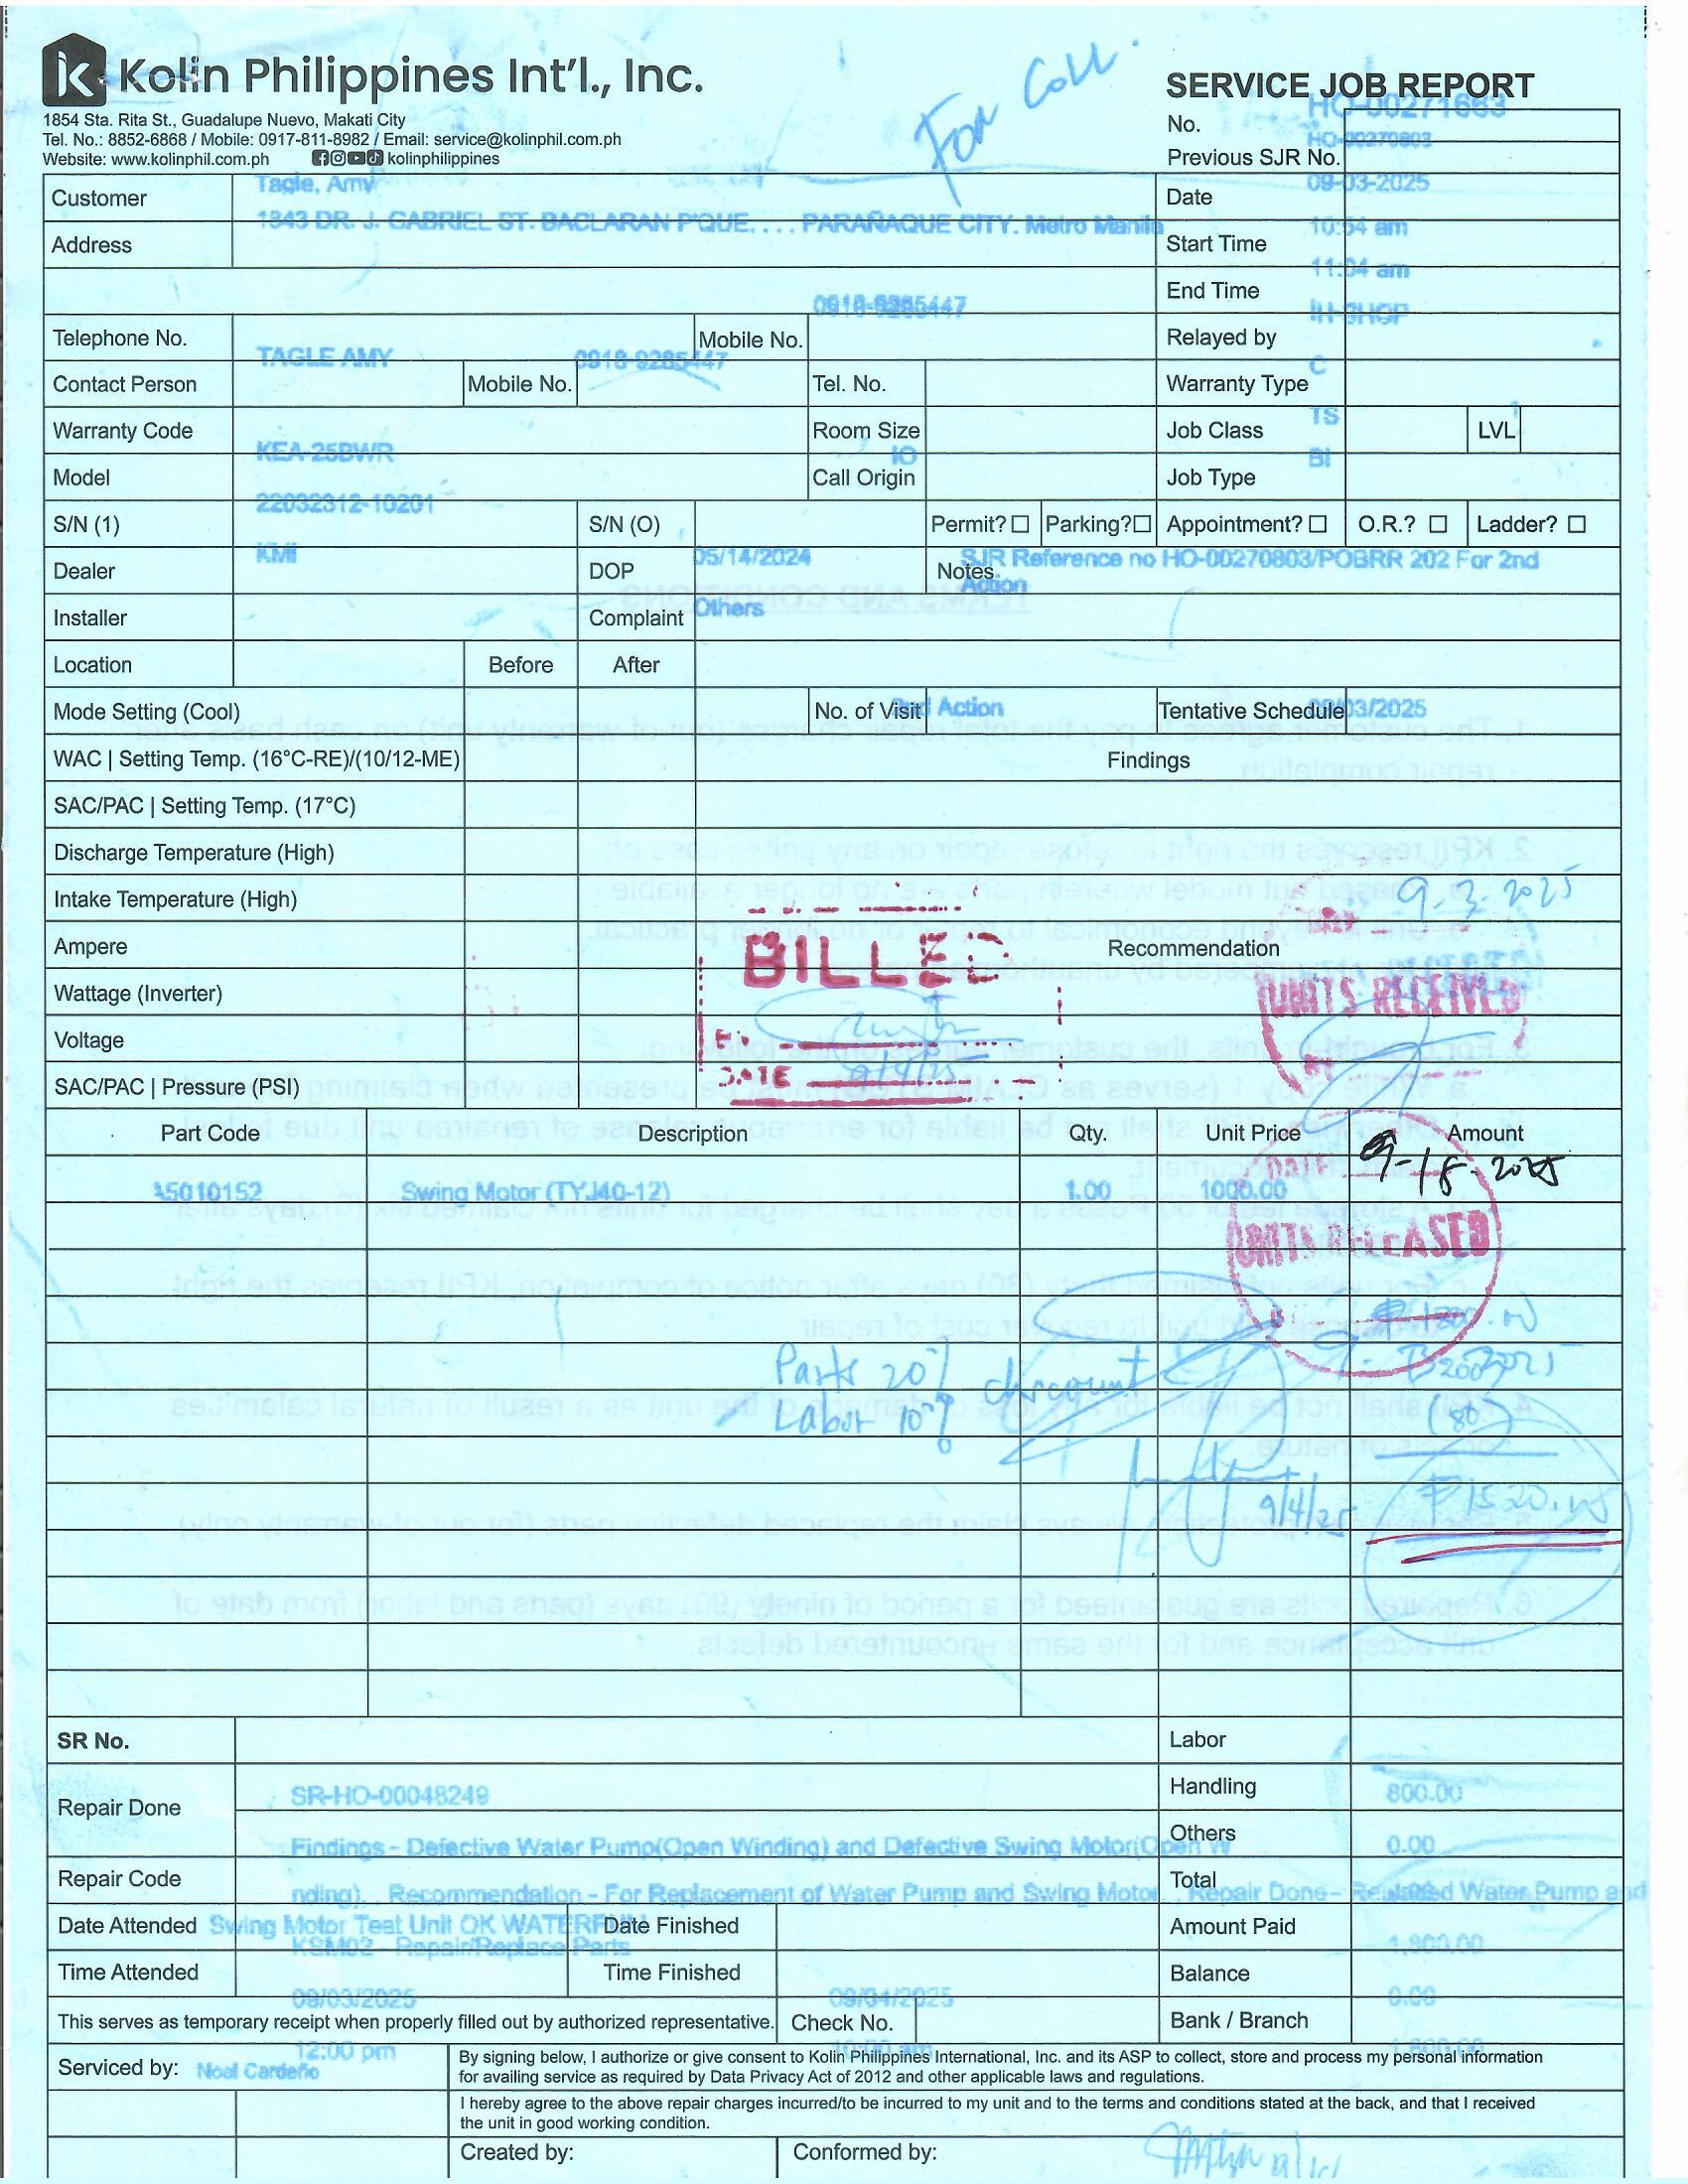 Kolin Philippines Int'l., Inc.
1854 Sta. Rita St., Guadalupe Nuevo, Makati City
Tel. No.: 8852-6868 / Mobile: 0917-811-8982 / Email: service@kolinphil.com.ph
Website: www.kolinphil.com.ph kolinphilippines
For Coll.
SERVICE JOB REPORT
No. HO-00271663
Previous SJR No. HO-00270803
Customer Tagle, Amy
Date 09-03-2025
Address 1843 DR. J. GABRIEL ST. BACLARAN P'QUE. . . . PARAÑAQUE CITY. Metro Manila
Start Time 10:54 am
End Time 11:04 am
Telephone No. Mobile No. 0918-9285447
Relayed by IH-SHOP
Contact Person TAGLE AMY Mobile No. 0918-9285447 Tel. No.
Warranty Type C
Warranty Code Room Size
Job Class TS LVL 1
Model KEA-25BWR Call Origin IO
Job Type BI
S/N (1) 22032312-10201 S/N (O) Permit? Parking? Appointment? O.R.? Ladder?
Dealer KMI DOP 05/14/2024 Notes SJR Reference no HO-00270803/POBRR 202 For 2nd
Action
Installer Complaint Others
Location Before After
Mode Setting (Cool) No. of Visit 2nd Action Tentative Schedule 09/03/2025
WAC | Setting Temp. (16°C-RE)/(10/12-ME) Findings
SAC/PAC | Setting Temp. (17°C)
Discharge Temperature (High)
Intake Temperature (High) 9.3.2025
Ampere BILLED Recommendation
Wattage (Inverter) UNITS RECEIVED
Voltage
SAC/PAC | Pressure (PSI) DATE 9/4/25
Part Code Description Qty. Unit Price Amount
9-18-2025
A5010152 Swing Motor (TYJ40-12) 1.00 1000.00
UNITS RELEASED
₱1800.00
Parts 20% discount
Labor 10%
(80)
9/4/25 ₱1520.00
SR No. SR-HO-00048249
Labor 800.00
Handling 0.00
Repair Done Findings - Defective Water Pump(Open Winding) and Defective Swing Motor(Open W
nding). . Recommendation - For Replacement of Water Pump and Swing Motor. . Repair Done- Replaced Water Pump and
Swing Motor Test Unit OK
Others
Total 1,800.00
Repair Code KSM02 - Repair/Replace Parts
Amount Paid 0.00
Date Attended 09/03/2025 Date Finished 09/04/2025
Balance 1,800.00
Time Attended 12:00 pm Time Finished 10:00 am
This serves as temporary receipt when properly filled out by authorized representative. Check No. Bank / Branch
Serviced by: Noel Cardeño
By signing below, I authorize or give consent to Kolin Philippines International, Inc. and its ASP to collect, store and process my personal information
for availing service as required by Data Privacy Act of 2012 and other applicable laws and regulations.
I hereby agree to the above repair charges incurred/to be incurred to my unit and to the terms and conditions stated at the back, and that I received
the unit in good working condition.
Created by: Conformed by: